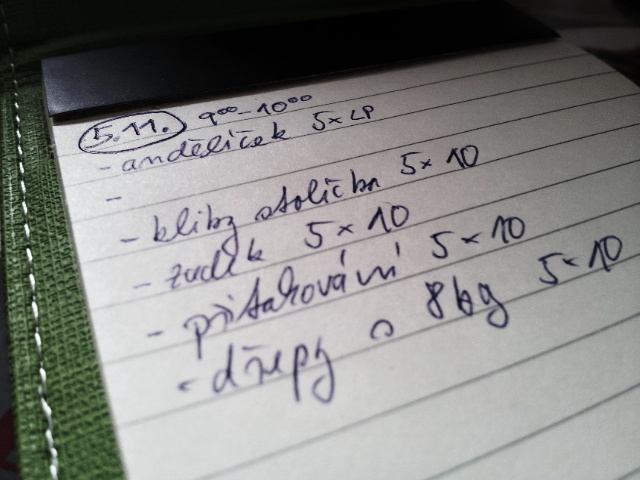 5.11. 9⁰⁰-10⁰⁰
- andělíček 5x LP
-
- kliky stolička 5x 10
- zadek 5x10
- přitahování 5x 10
- dřepy o 8kg 5x10